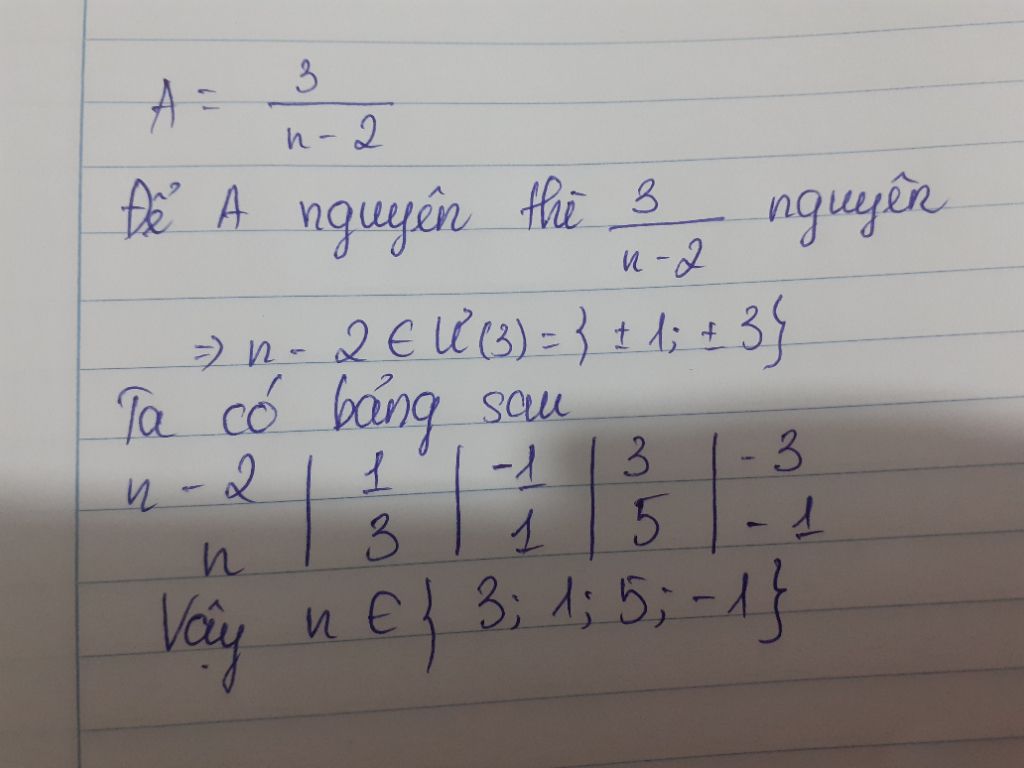 A = 3/(n - 2)
Để A nguyên thì 3/(n - 2) nguyên
⇒ n - 2 ∈ Ư(3) = } ±1; ±3}
Ta có bảng sau
n - 2 | 1 | -1 | 3 | -3
n | 3 | 1 | 5 | -1
Vậy n ∈ { 3; 1; 5; -1}